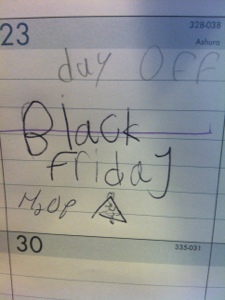 23
328-038
Ashura
day OFF
Black
Friday
30
335-031